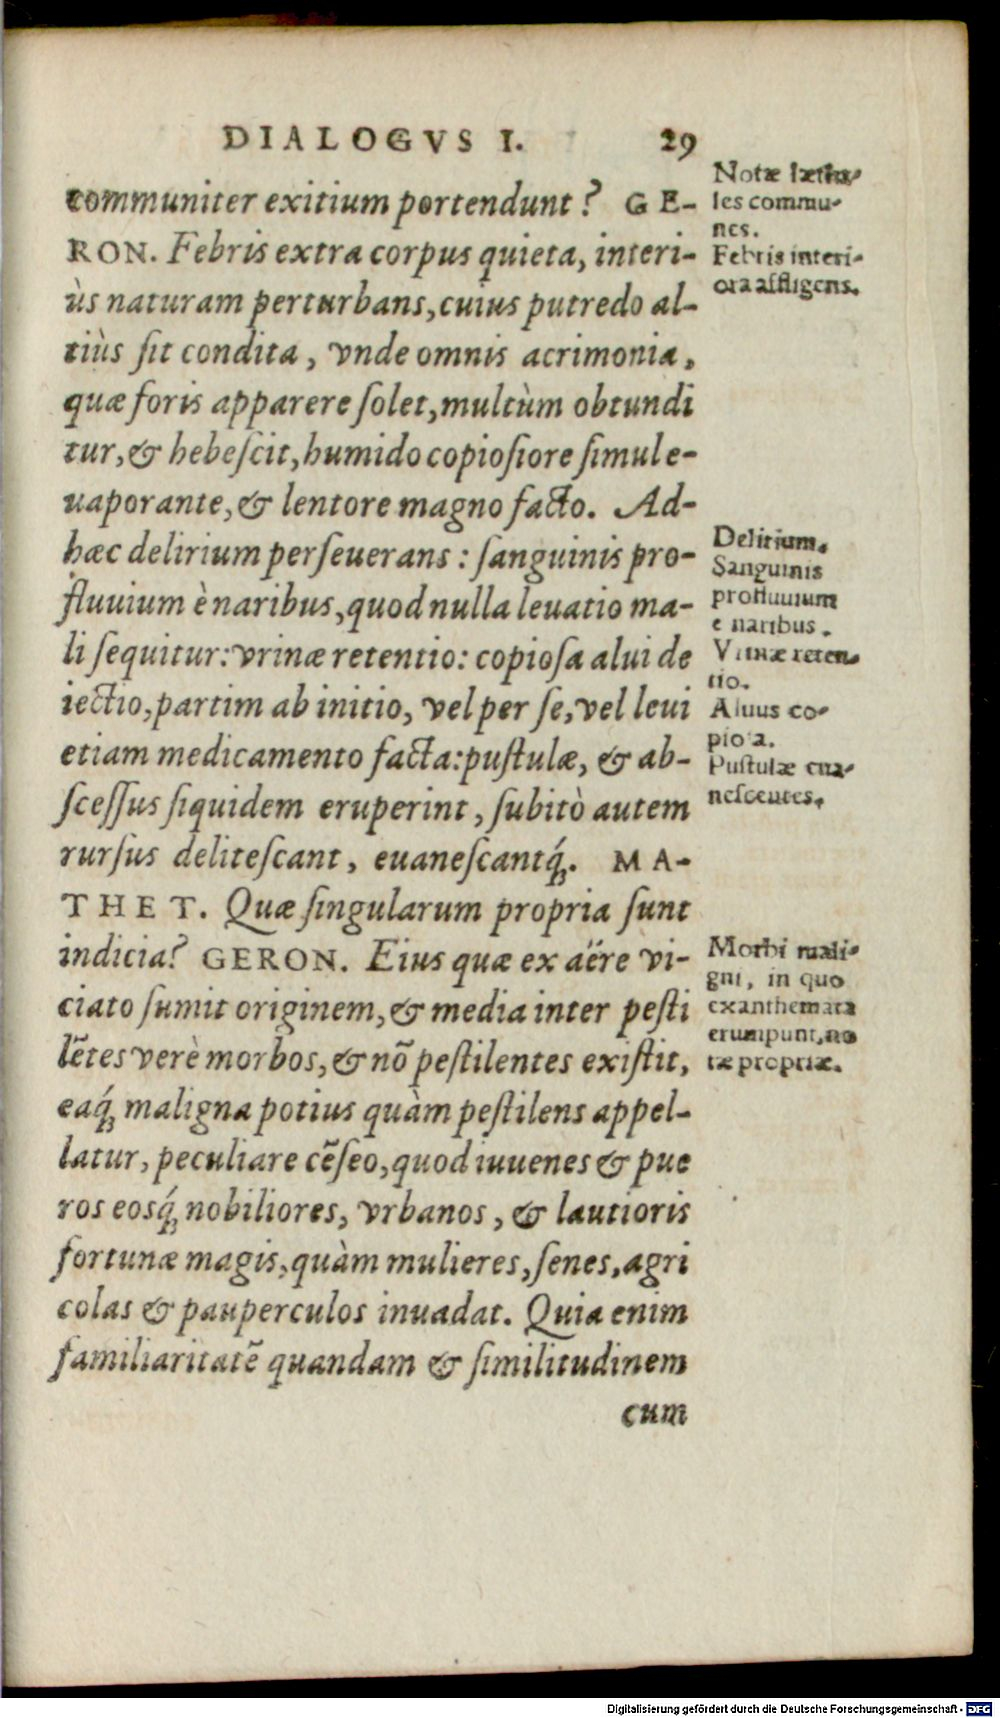 DIALOGVS I. 29
communiter exitium portendunt? GE-
RON. Febris extra corpus quieta, interi-
ùs naturam perturbans, cuius putredo al-
tiùs ſit condita, vnde omnis acrimonia,
quæ foris apparere ſolet, multùm obtundi
tur, & hebeſcit, humido copioſiore ſimul e-
uaporante, & lentore magno facto. Ad-
hæc delirium perſeuerans: ſanguinis pro-
fluuium è naribus, quod nulla leuatio ma-
li ſequitur: vrinæ retentio: copioſa alui de
iectio, partim ab initio, vel per ſe, vel leui
etiam medicamento facta: puſtulæ, & ab-
ſceſſus ſiquidem eruperint, ſubitò autem
rurſus deliteſcant, euaneſcantq́;. MA-
THET. Quæ ſingularum propria ſunt
indicia? GERON. Eius quæ ex aëre vi-
ciato ſumit originem, & media inter peſti
lẽtes verè morbos, & nõ peſtilentes exiſtit,
eaq́; maligna potius quàm peſtilens appel-
latur, peculiare cẽſeo, quod iuuenes & pue
ros eosq́; nobiliores, vrbanos, & lautioris
fortunæ magis, quàm mulieres, ſenes, agri
colas & pauperculos inuadat. Quia enim
familiaritatẽ quandam & ſimilitudinem
cum
Notæ lætha-
les commu-
nes.
Febris interi-
ora affligens.
Delirium.
Sanguinis
profluuium
e naribus.
Vrinæ reten-
tio.
Aluus co-
pioſa.
Puſtulæ eua-
neſcentes.
Morbi mali-
gni, in quo
exanthemata
erumpunt, no
tæ propriæ.
Digitalisierung gefördert durch die Deutsche Forschungsgemeinschaft - DFG